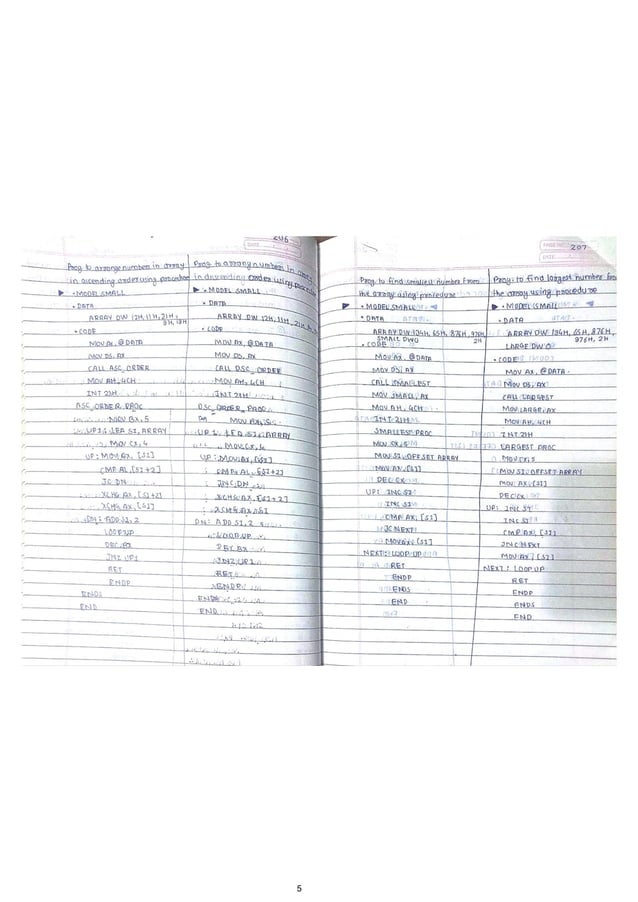 206
Prog to arrange numbers in array
in ascending order using procedure
▶ .MODEL SMALL
.DATA
ARRAY DW 12H, 11H, 21H,
9H, 19H
.CODE
MOV AX, @DATA
MOV DS, AX
CALL ASC_ORDER
MOV AH, 4CH
INT 21H
ASC_ORDER PROC
MOV BX, 5
UP1: LEA SI, ARRAY
MOV CX, 4
UP: MOV AX, [SI]
CMP AL, [SI+2]
JC DN
XCHG AX, [SI+2]
XCHG AX, [SI]
DN: ADD SI, 2
LOOP UP
DEC BX
JNZ UP1
RET
ENDP
ENDS
END
Prog to array numbers in array
in descending order using procedure
▶ .MODEL SMALL
.DATA
ARRAY DW 12H, 11H, 21H,
.CODE
MOV AX, @DATA
MOV DS, AX
CALL DSC_ORDER
MOV AH, 4CH
INT 21H
DSC_ORDER PROC
MOV BX, 5
UP1: LEA SI, ARRAY
MOV CX, 4
UP: MOV AX, [SI]
CMP AL, [SI+2]
JNC DN
XCHG AX, [SI+2]
XCHG AX, SI
DN: ADD SI, 2
LOOP UP
DEC BX
JNZ UP1
RET
ENDP
ENDS
END
PAGE NO. 207
DATE
Prog. to find smallest number from
the array using procedure
▶ .MODEL SMALL
.DATA
ARRAY DW 134H, 65H, 876H, 976H,
SMALL DW 0 2H
.CODE
MOV AX, @DATA
MOV DS, AX
CALL SMALLEST
MOV SMALL, AX
MOV AH, 4CH
INT 21H
SMALLEST PROC
MOV CX, 5
MOV SI, OFFSET ARRAY
MOV AX, [SI]
DEC CX
UP: INC SI
INC SI
CMP AX, [SI]
JC NEXT
MOV AX, [SI]
NEXT: LOOP UP
RET
ENDP
ENDS
END
Prog. to find largest number from
the array using procedure
▶ .MODEL SMALL
.DATA
ARRAY DW 134H, 65H, 876H,
976H, 2H
LARGE DW 0
.CODE
MOV AX, @DATA
MOV DS, AX
CALL LARGEST
MOV LARGE, AX
MOV AH, 4CH
INT 21H
LARGEST PROC
MOV CX, 5
MOV SI, OFFSET ARRAY
MOV AX, [SI]
DEC CX
UP: INC SI
INC SI
CMP AX, [SI]
JNC NEXT
MOV AX, [SI]
NEXT: LOOP UP
RET
ENDP
ENDS
END
5